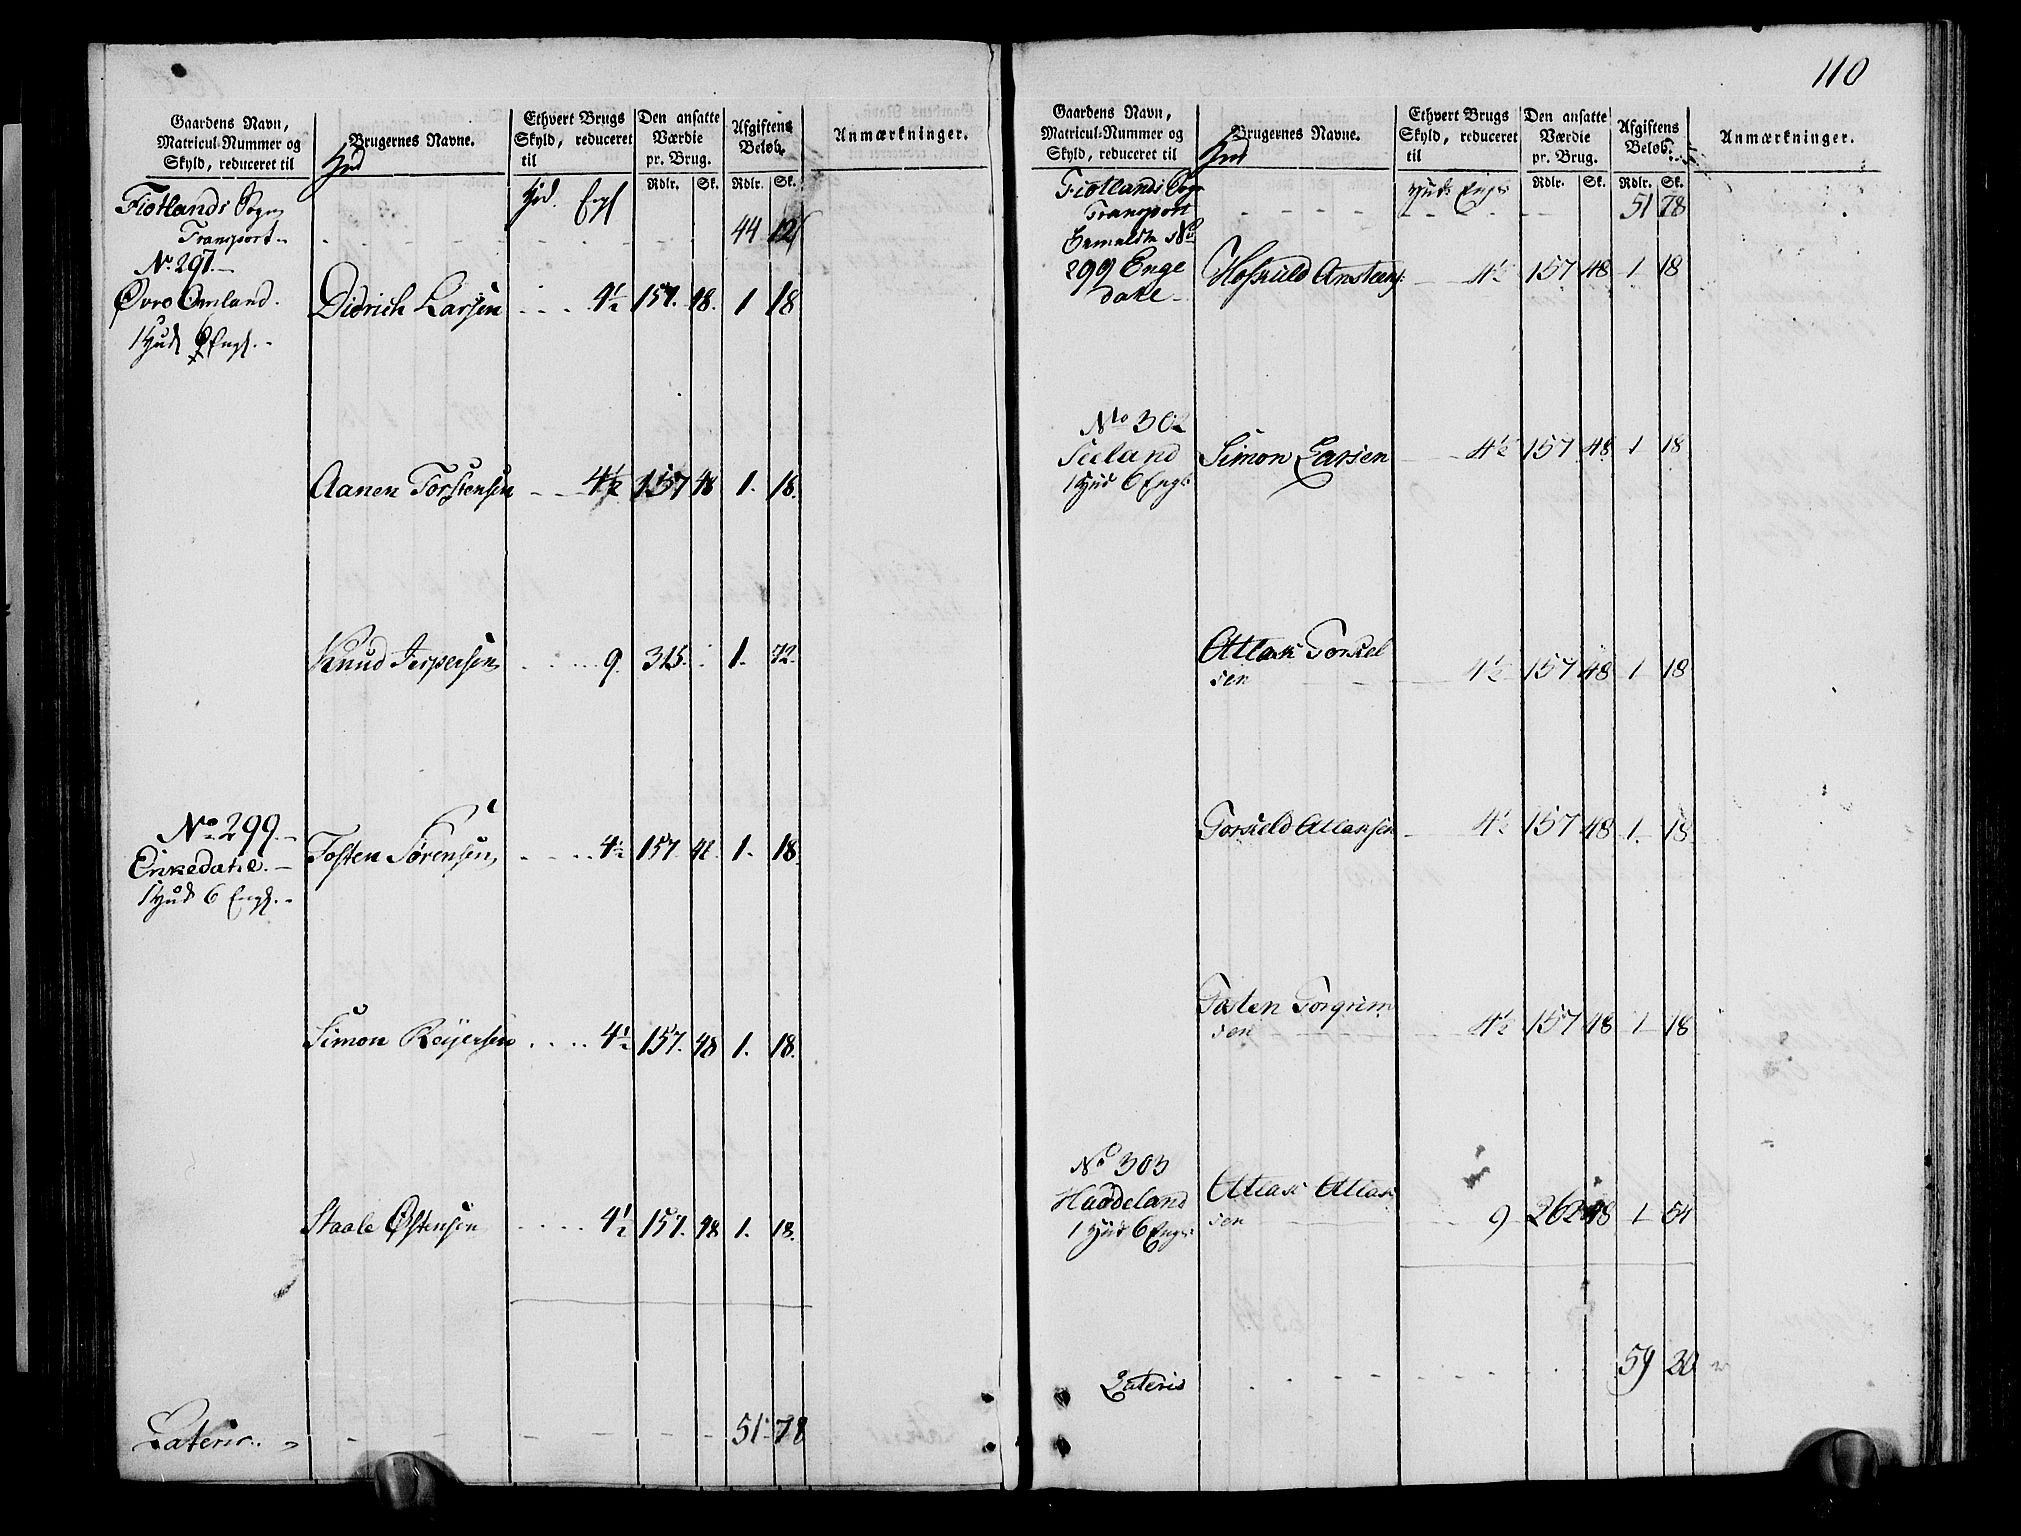 Gaardens Navn, Matricul-Nummer og Skyld, reduceret til
Brugernes Navne.
Ethvert Brugs Skyld, reduceret til
Den ansatte Værdie pr. Brug.
Afgiftens Beløb.
Anmærkninger.
Rdlr. Sk. Rdlr. Sk.
Fiotlands Sogn
Transport 44 12
No 297
Øvre Omland. Didrich Larsen 4½ 157. 48. 1 18
1 Hud 6 Eng.
Aanen Torstensen 4½ 157 48 1. 18.
Knud Jespersen 9. 315. 1. 72.
No 299.
Enkedatie. Tosten Sørensen 4½ 157. 48 1. 18.
1 Hud 6 Eng.
Simon Reijersen 4½ 157. 48 1. 18.
Staale Østensen 4½ 157. 48 1. 18.
Lateris 51 78
110
Gaardens Navn, Matricul-Nummer og Skyld, reduceret til
Brugernes Navne.
Ethvert Brugs Skyld, reduceret til
Den ansatte Værdie pr. Brug.
Afgiftens Beløb.
Anmærkninger.
Rdlr. Sk. Rdlr. Sk.
Fiotlands Sogn
Transport 51 78
299 Enge 4½ 157 48 1 18
datie
No 302
Seeland Simon Larsen 4½ 157 48 1 18
1 Hud 6 Eng.
Atlak Torkel
sen 4½ 157 48 1 18
Torkield Atlaksen 4½ 157 48 1. 18
Tosten Torgrim
sen 4½ 157 48 1 18
No 303
Haadeland Atlak Atlak
sen 9 262 48 1 54
1 Hud 6 Eng.
Lateris 59 30